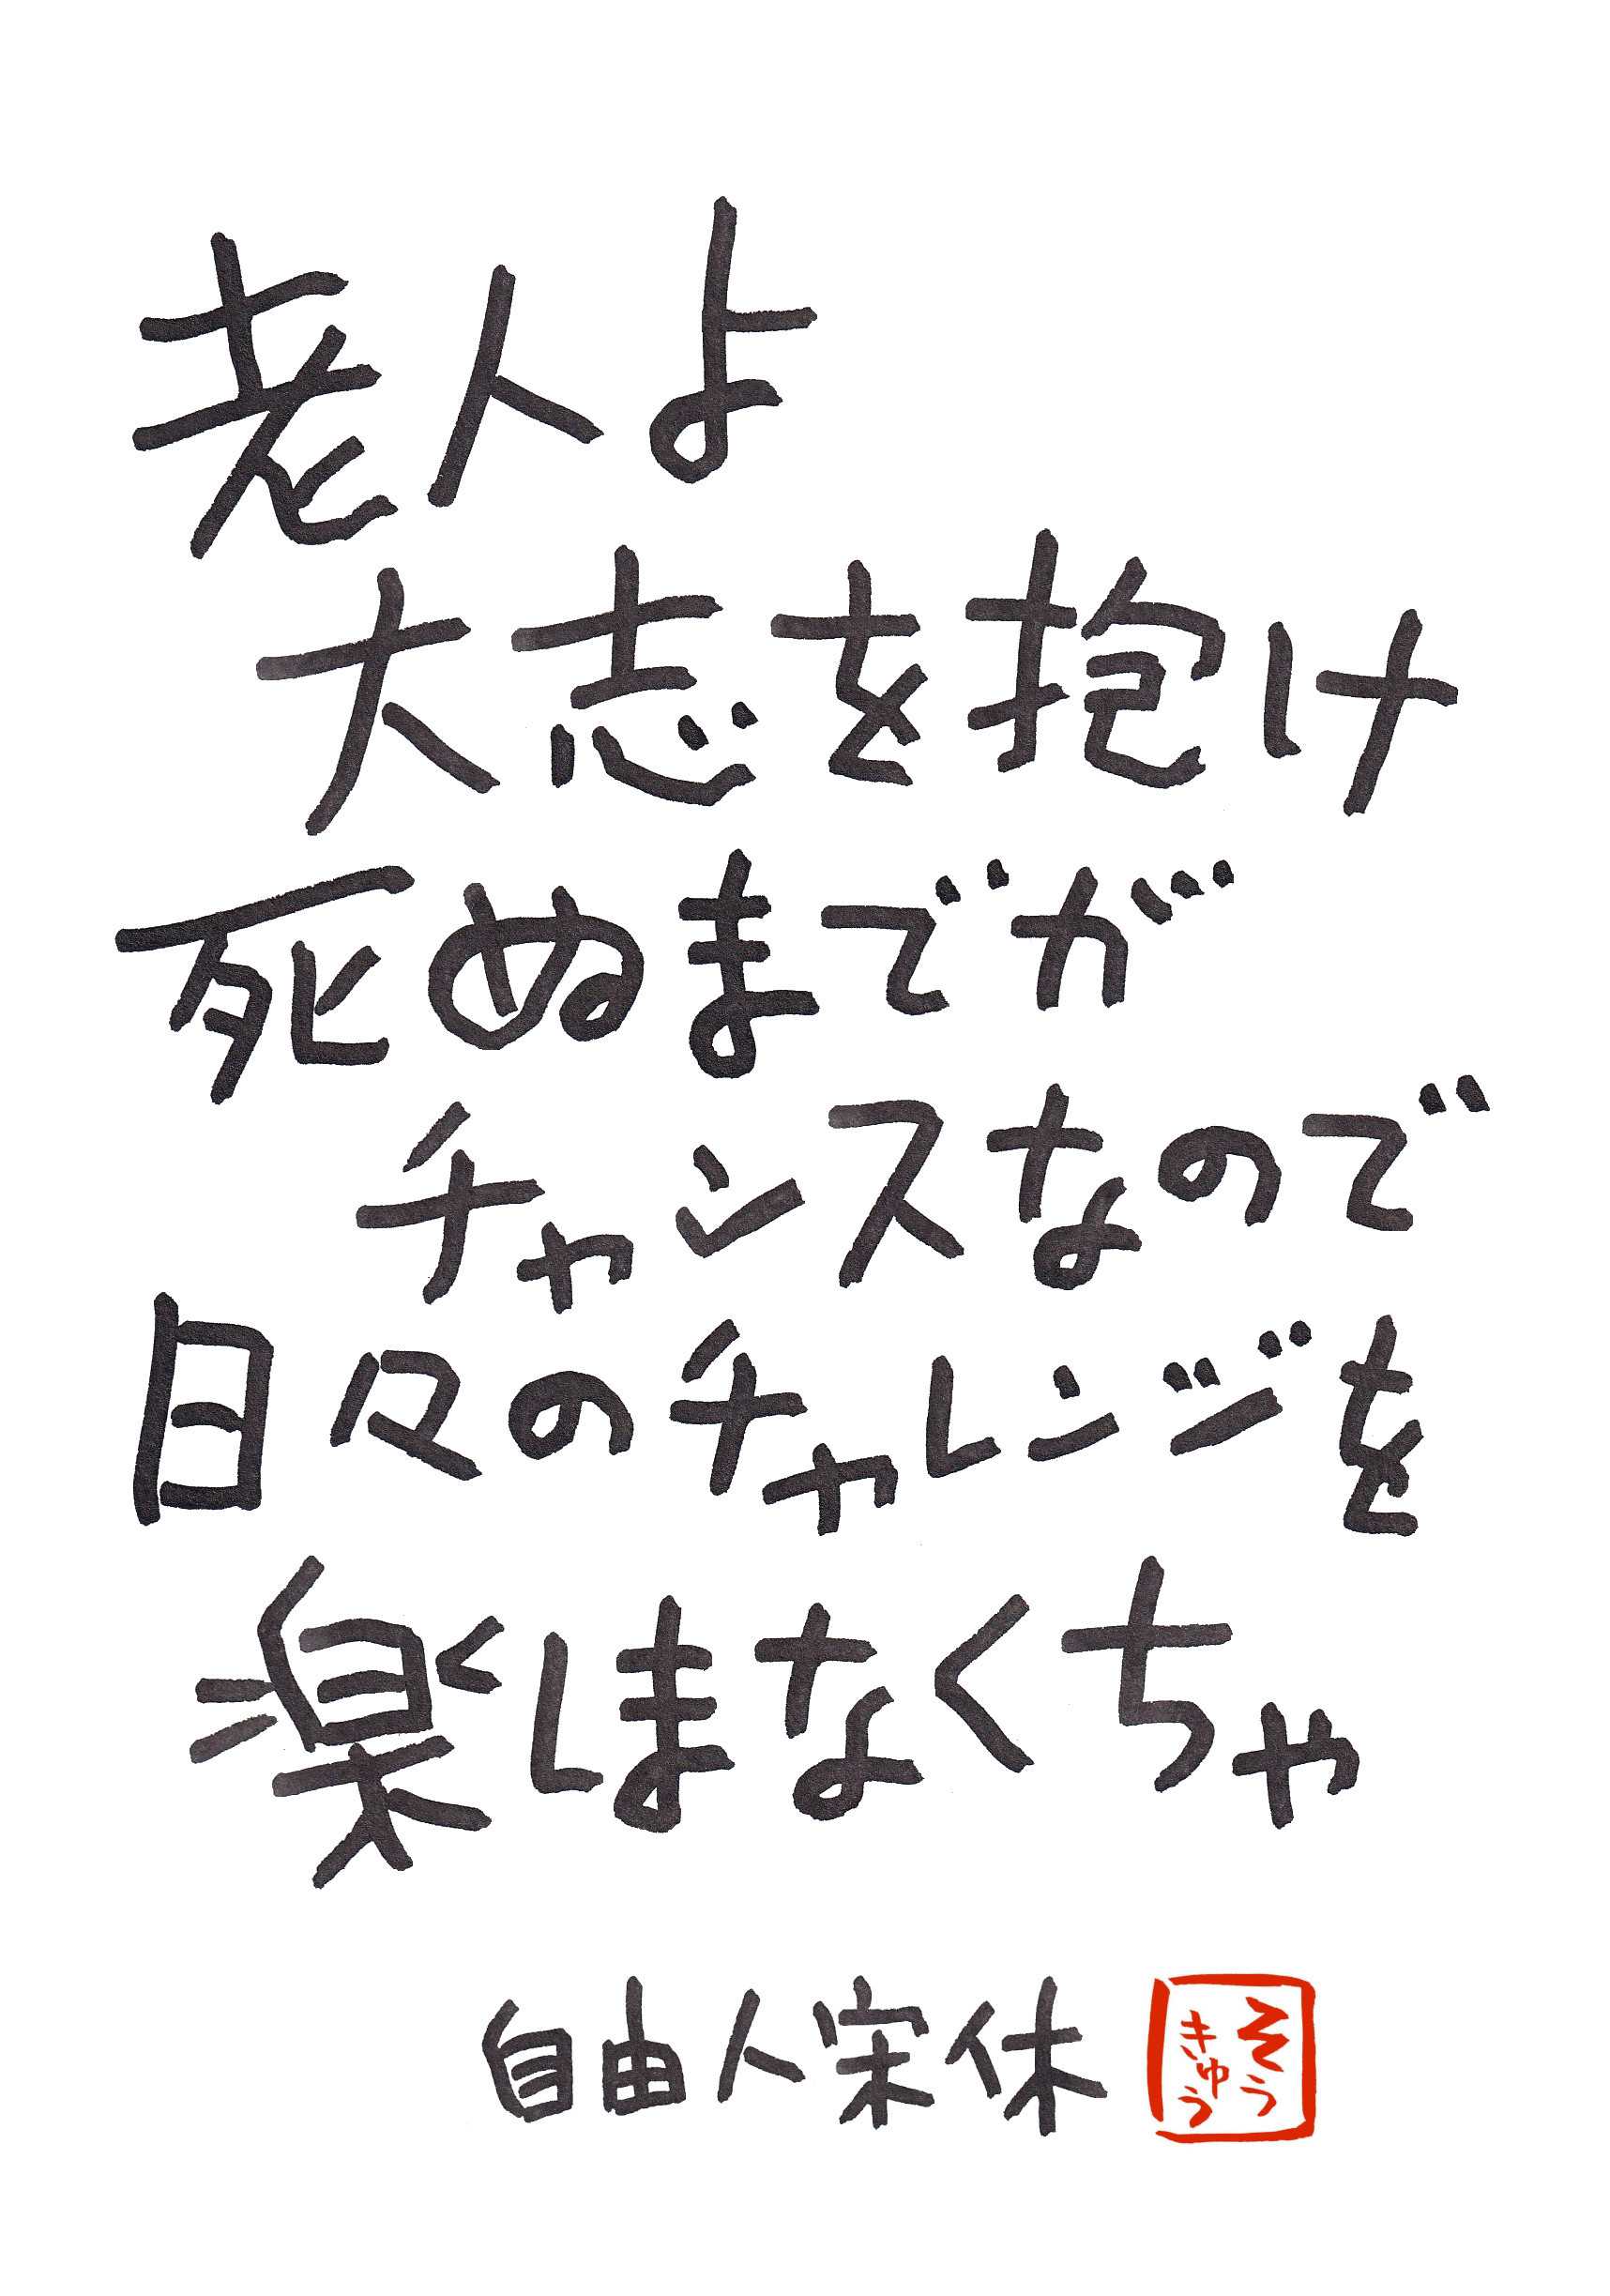 老人よ
大志を抱け
死ぬまでが
チャンスなので
日々のチャレンジを
楽しまなくちゃ
自由人宋休
そう
きゅう